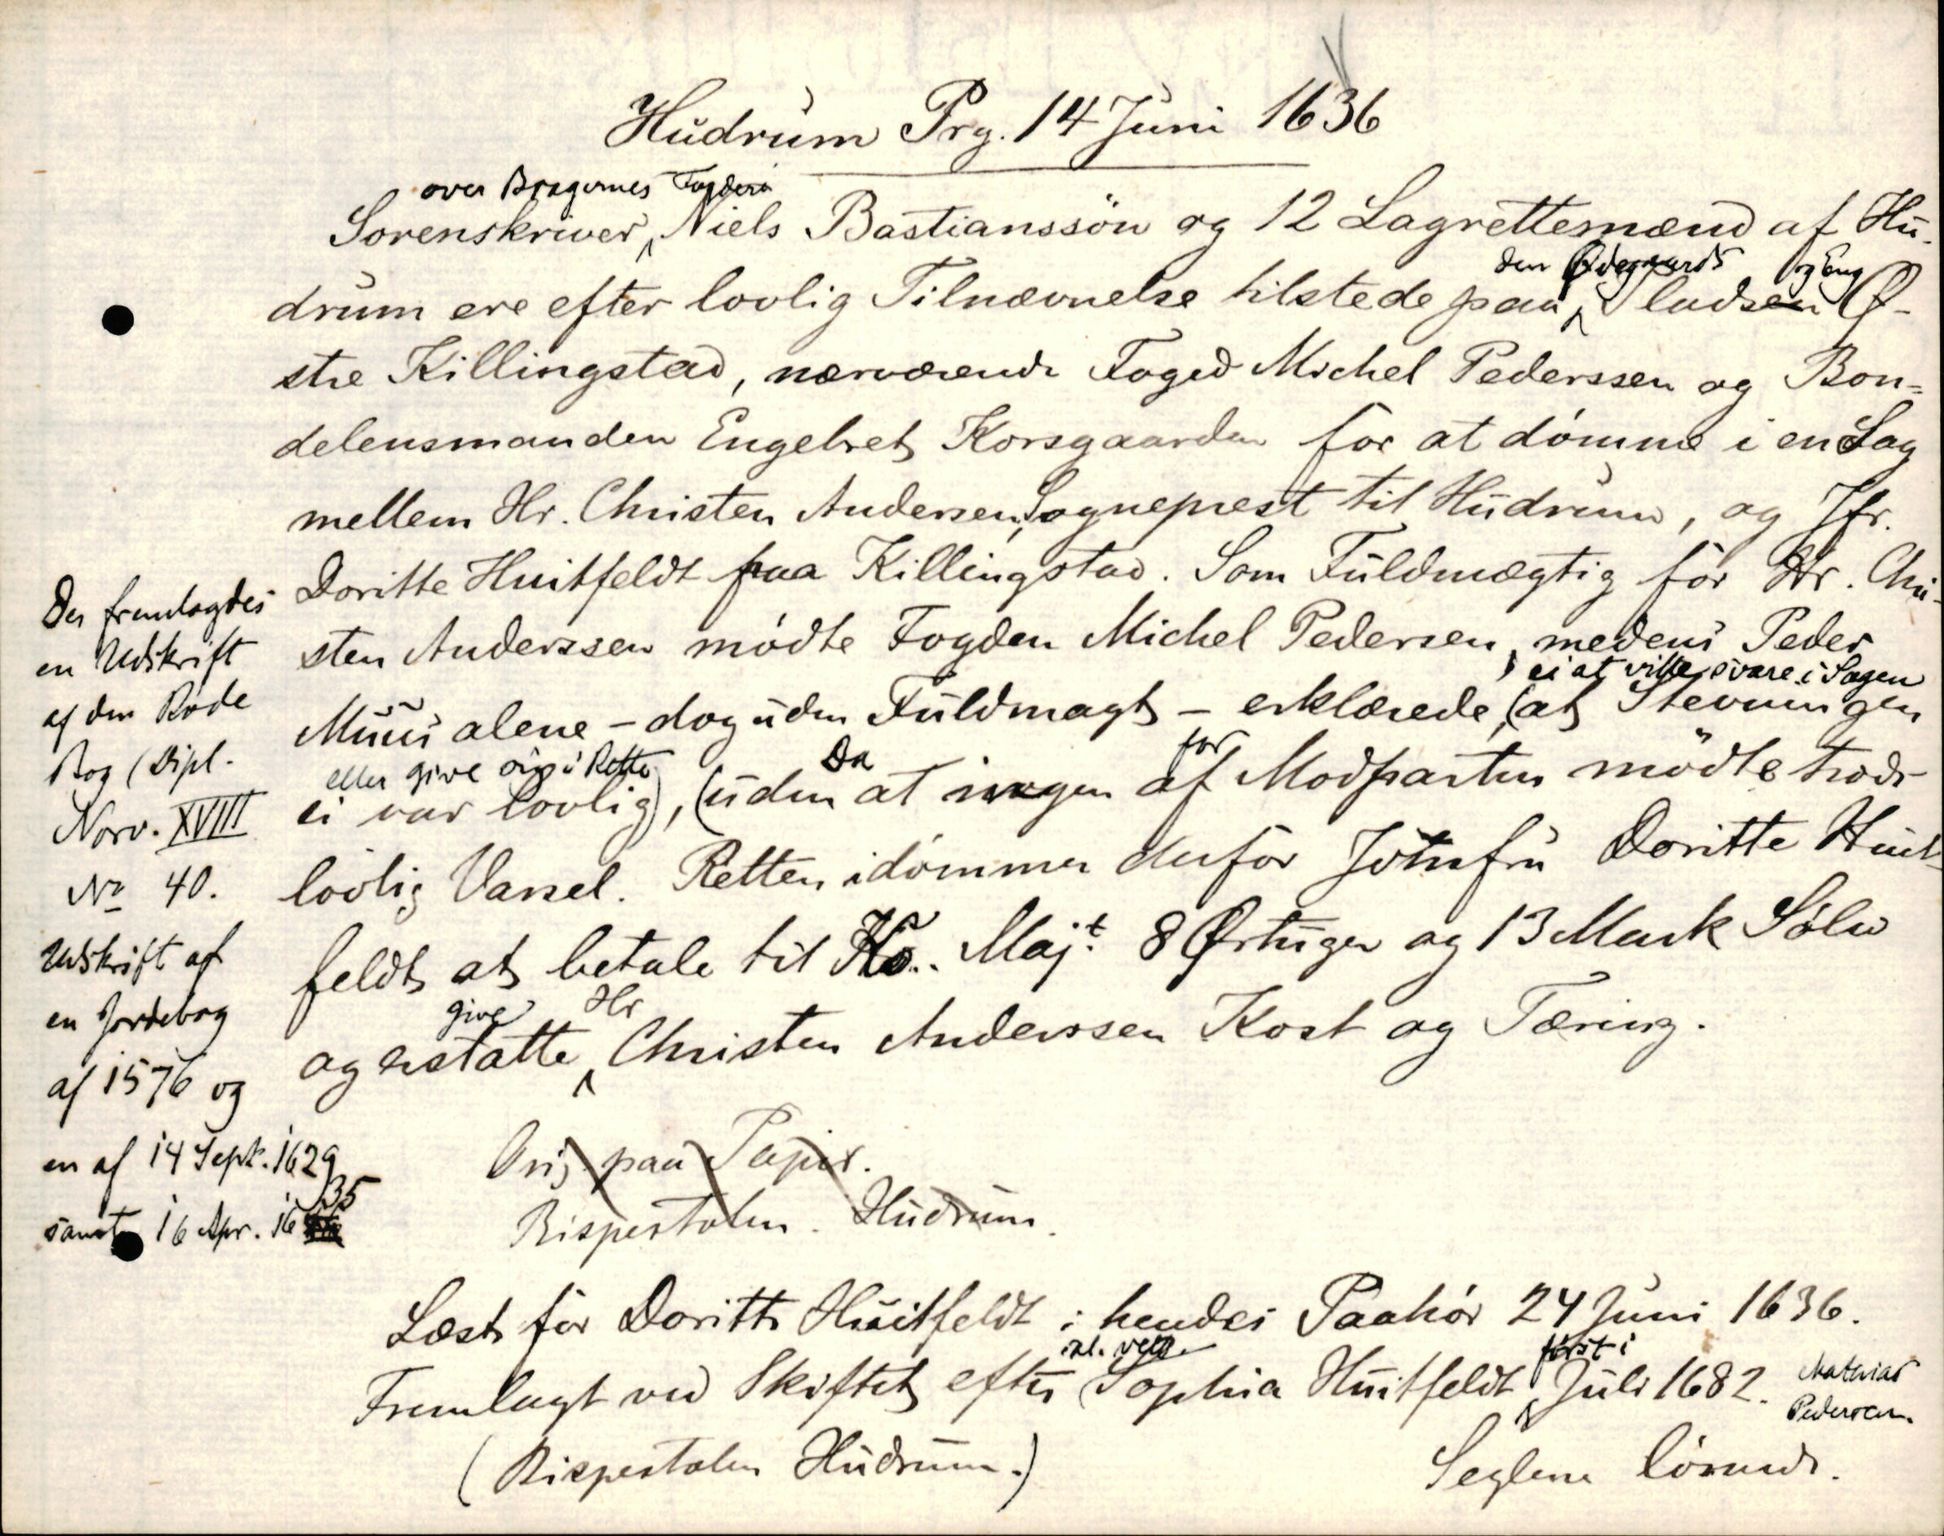 Hudrum Prg. 14 Juni 1636
over Bragernes Fogderi
Sorenskriver Niels Bastianssön og 12 Lagrettemænd af Hu-
den Ødegaards og Eng
drum ere efter lovlig Tilnævnelse tilstede paa Pladsen Ø-
stre Killingstad, nærværende Foged Michel Pederssen og Bon=
delensmanden Engelret Korsgaarden for at dömme i en Sag
mellem Hr. Christen Andersen, Sogneprest til Hudrum, og Jfr.
Doritte Huitfeldt paa Killingstad. Som Fuldmægtig for Hr. Chri-
sten Anderssen mödte Fogden Michel Pedersen, medens Peder
ei at ville svare i Sagen
Muus alene – dog uden Fuldmagt – erklærede, (at Stevningen
eller give sig i Rette Da for
ei var lovlig), (uden at ingen af Modparten mödte trods
lovlig Varsel. Retten idömmer derfor Jomfru Doritte Huit-
feldt at betale til Ko. Maj.t 8 Örtuger og 13 Mark Sölv
give Hr
og erstatte Christen Anderssen Kost og Tæring.
Orig. paa Papir.
Bispestolen. Hudrum.
Læst for Doritte Huitfeldt i hendes Paahör 24 Juni 1636.
sal. först i
Fremlagt ved Skiftet efter Sophia Huitfeldt Juli 1682. Mathias
Pederssen.
(Bispestolen Hudrum.) Seglene lösnede.
Der fremlagdes
en Udskrift
af den Röde
Bog (Dipl.
Norv. XVIII
No 40.
Udskrift af
en Jordebog
af 1576 og
en af 14 Sept. 1629
samt 16 Apr. 1635